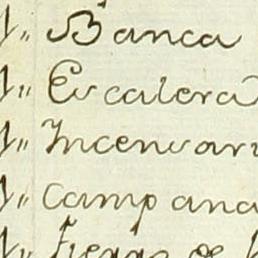 1,, Banca
1,, Escalera
1,, Incensari
1,, Campana
1,, de